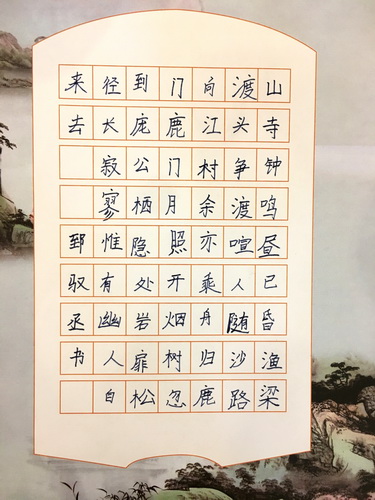 山寺钟鸣昼已昏渔梁
渡头争渡喧人随沙路
向江村余亦乘舟归鹿
门鹿门月照开烟树忽
到庞公栖隐处岩扉松
径长寂寥惟有幽人自
来去 驭丞书